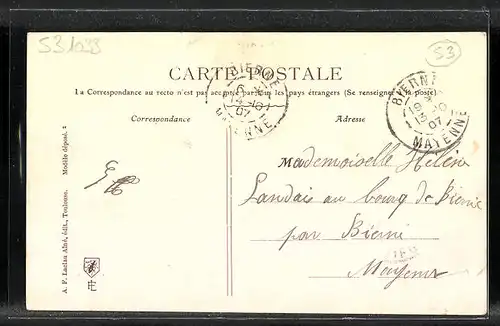 531033
53
CARTE POSTALE
La Correspondance au recto n'est pas acceptée par tous les pays étrangers (Se renseigner à la poste)
Correspondance
Adresse
BIERNÉ
MAYENNE
BIERNÉ
07
MAYENNE
Mademoiselle Hélène
Landais au bourg de Bierné
par Bierné
Mayenne
A. F. Laclau Aîné, édit., Toulouse. Modèle déposé. 2